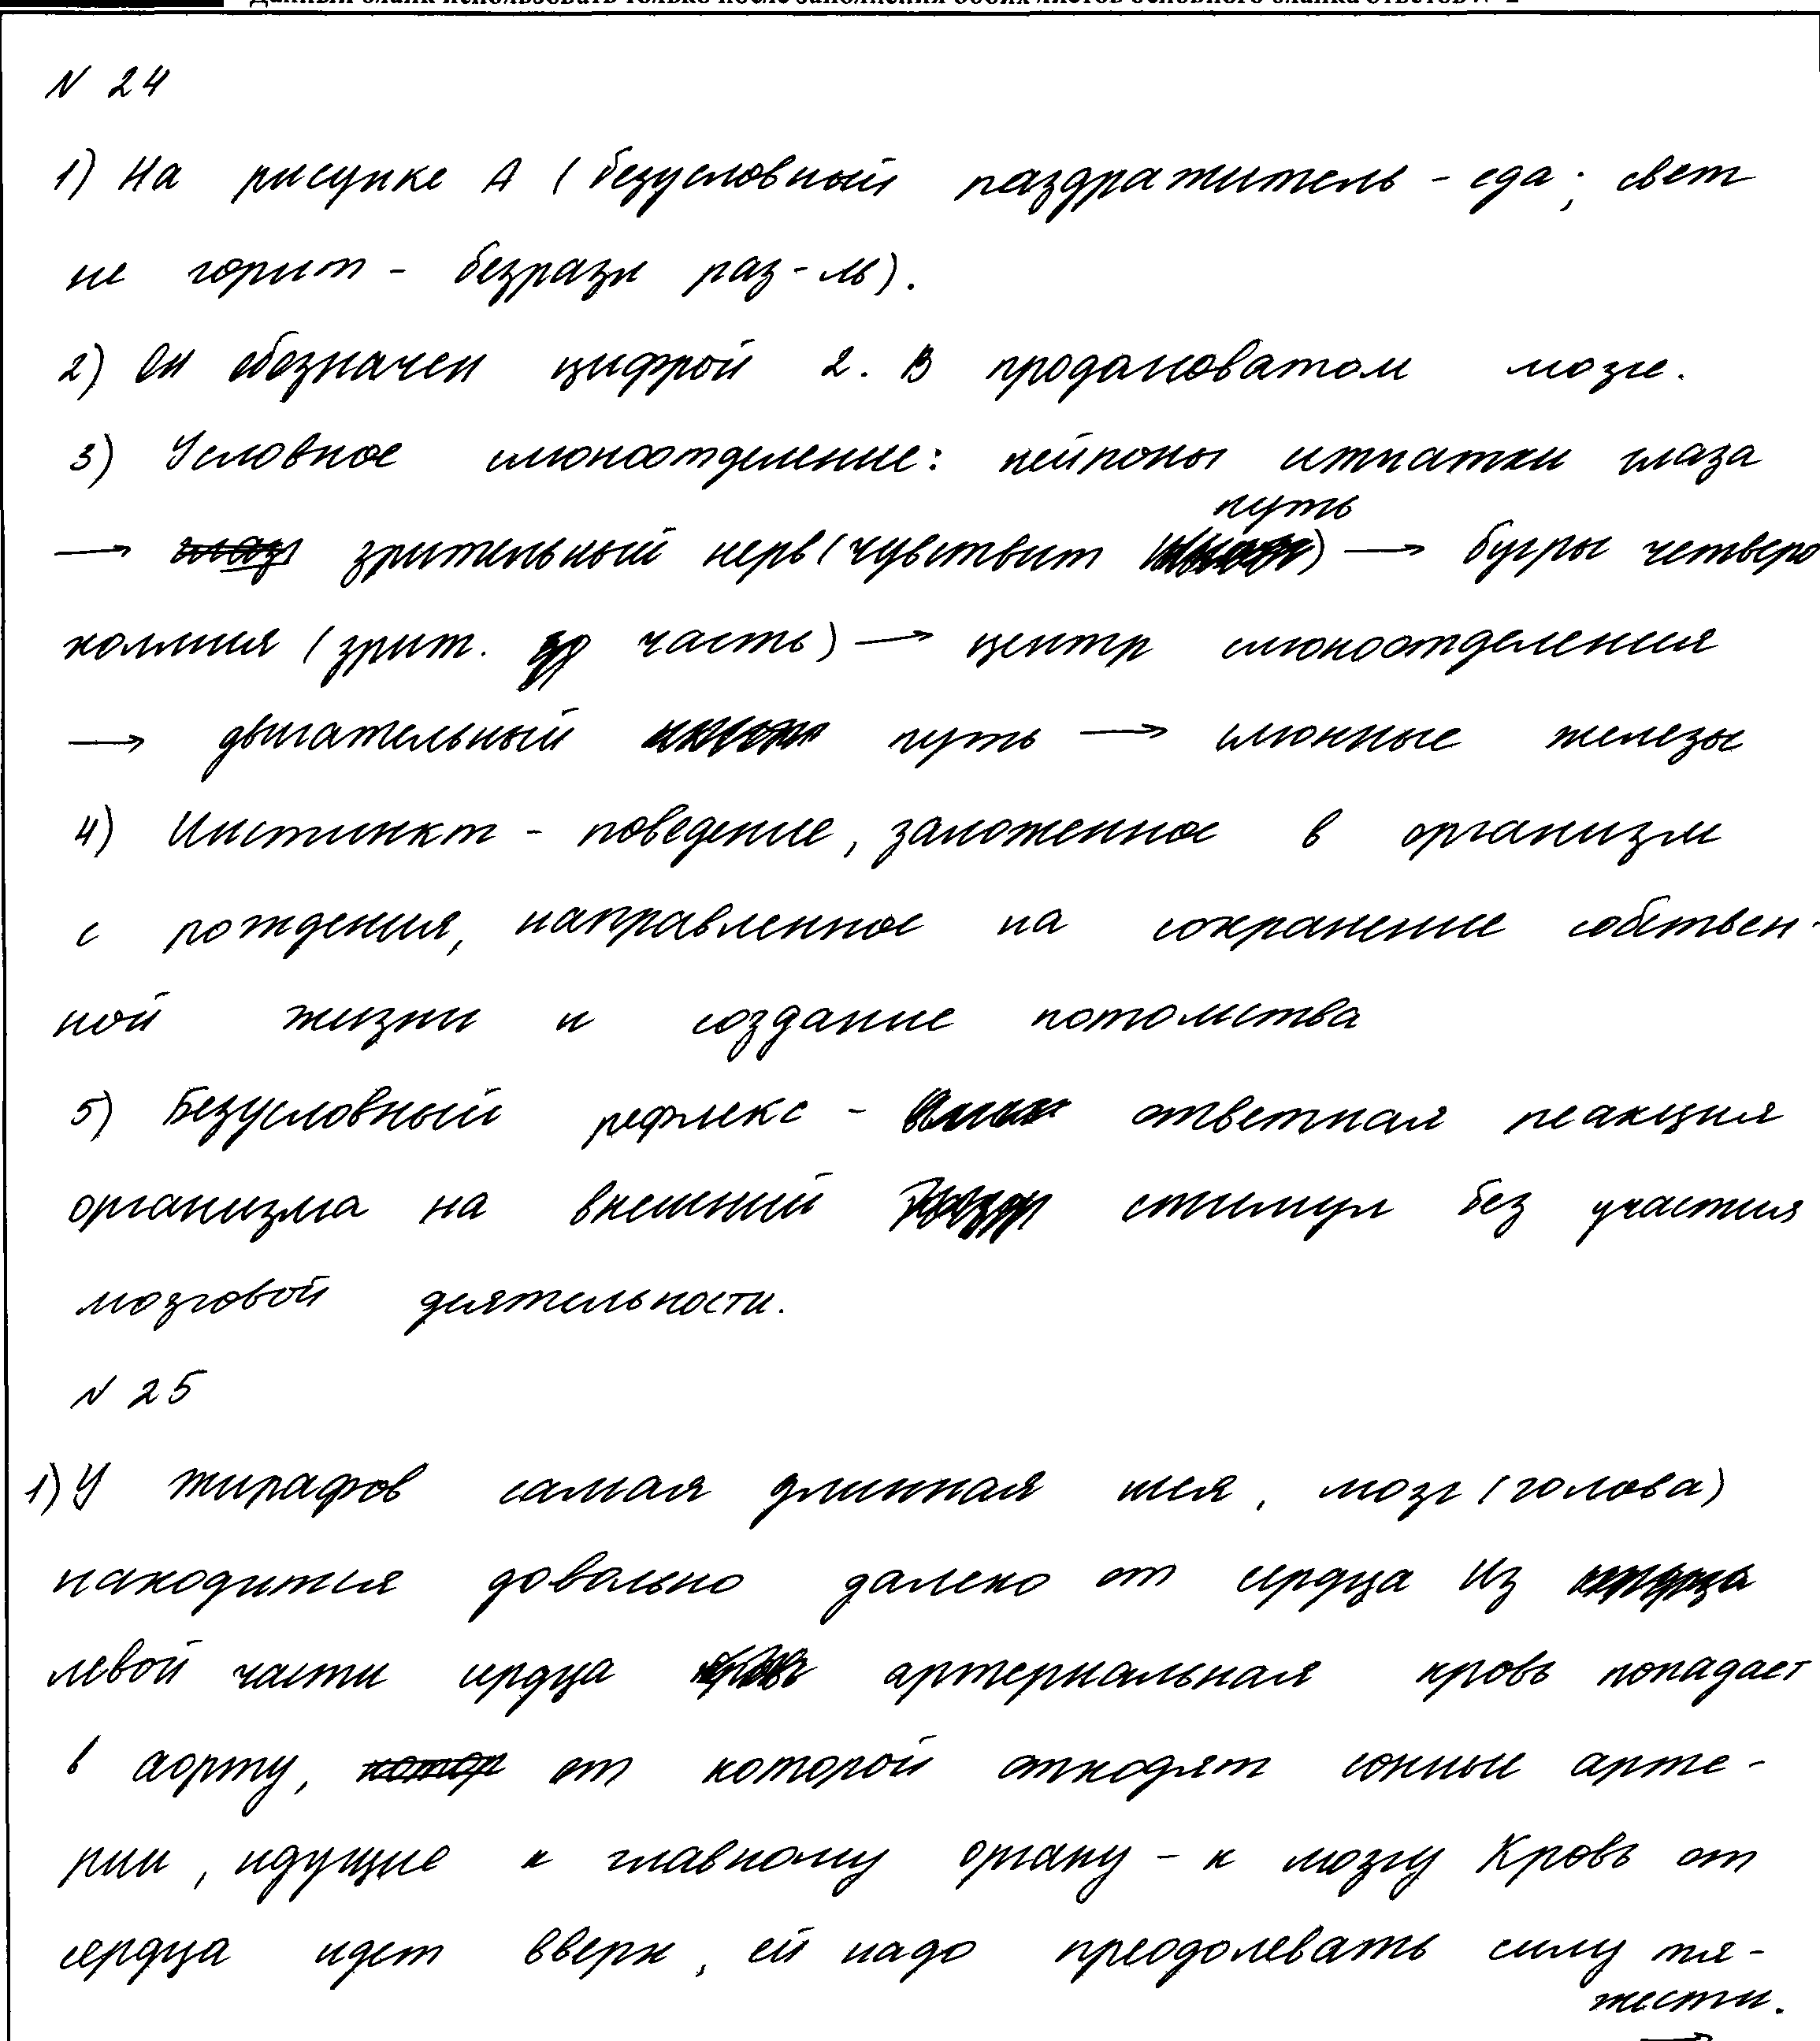 Данный бланк использовать только после заполнения обоих листов основного бланка ответов № 2
N 24
1) На рисунке А (безусловный раздражитель - еда; свет
не горит - безразл раз-ль).
2) Он обозначен цифрой 2. В продолговатом мозге.
3) Условное слюноотделение: нейроны сетчатки глаза
путь
→ зрительный нерв (чувствит ) → бугры четверо
холмия (зрит. часть) → центр слюноотделения
→ двигательный путь → слюнные железы
4) Инстинкт - поведение, заложенное в организм
с рождения, направленное на сохранение собствен-
ной жизни и создание потомства
5) Безусловный рефлекс - ответная реакция
организма на внешний стимул без участия
мозговой деятельности.
N 25
1) У жирафов самая длинная шея, мозг (голова)
находится довольно далеко от сердца Из
левой части сердца артериальная кровь попадает
в аорту, от которой отходят сонные арте-
рии, идущие к главному органу - к мозгу Кровь от
сердца идет вверх, ей надо преодолевать силу тя-
жести.
→